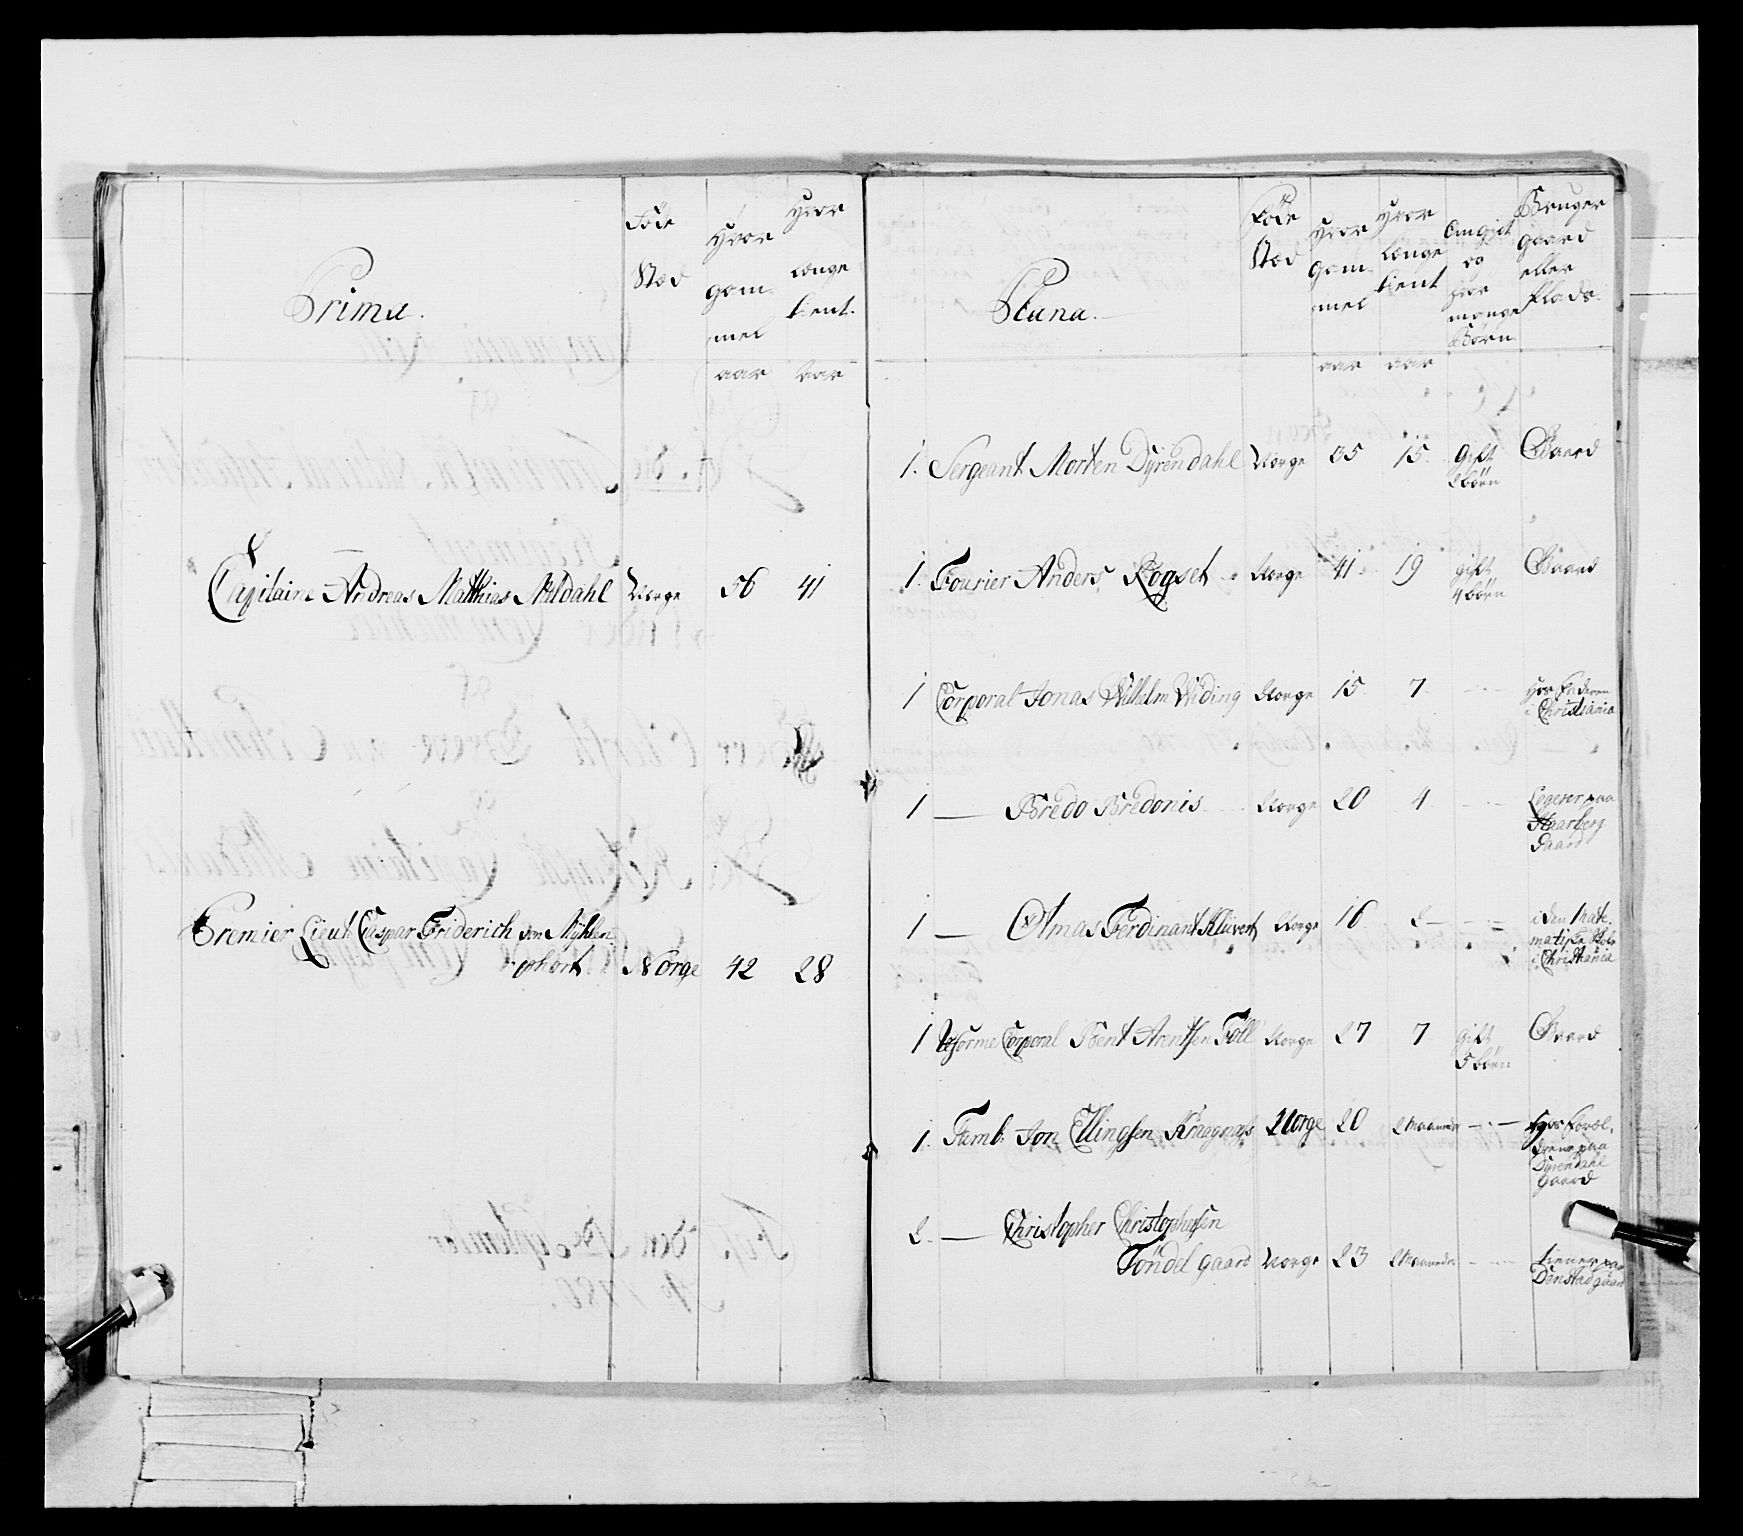 Prima.
Föde Stæd
Hvor gam- mel
Hvor længe tient.
aar aar
Capitaine Andreas Matthias Meldahl Norge 56 41
Premier Lieut. Caspar Friderich von Mÿhlen-
phort Norge 42 28
Plana.
Føde Stæd
Hvor gam- mel
Hvor længe tient
Om gift og hvor mange Børn
Bruger gaard eller Plads.
aar aar
1. Sergeant Morten Dÿrendahl Norge 35 15 Gift Gaard
2 börn
1. Fourier Anders Rogset Norge 41 19 gift Gaard
4 börn
1 Corporal Jonas Wilhelm Widing Norge 15 7 Hos Faderen
i Christiania
1 — Bredo Bredonis Norge 20 4 Logerer paa
gaard
1 — Ferdinant Klüwert Norge 16 2 i den Mate-
matiske Skole
i Christiania
1 Corporal Bent Arentsen Föll Norge 27 7 gift Gaard
5 börn
1. Tamb. Jon Ellingsen Kraagnæs Norge 20 2 Maaneder hos Foræl-
drene paa
Dÿrendahl
gaard
2. — Christopher Christophersen
Töndel gaard Norge 23 2 Maaneder tiener paa
Denstad gaard